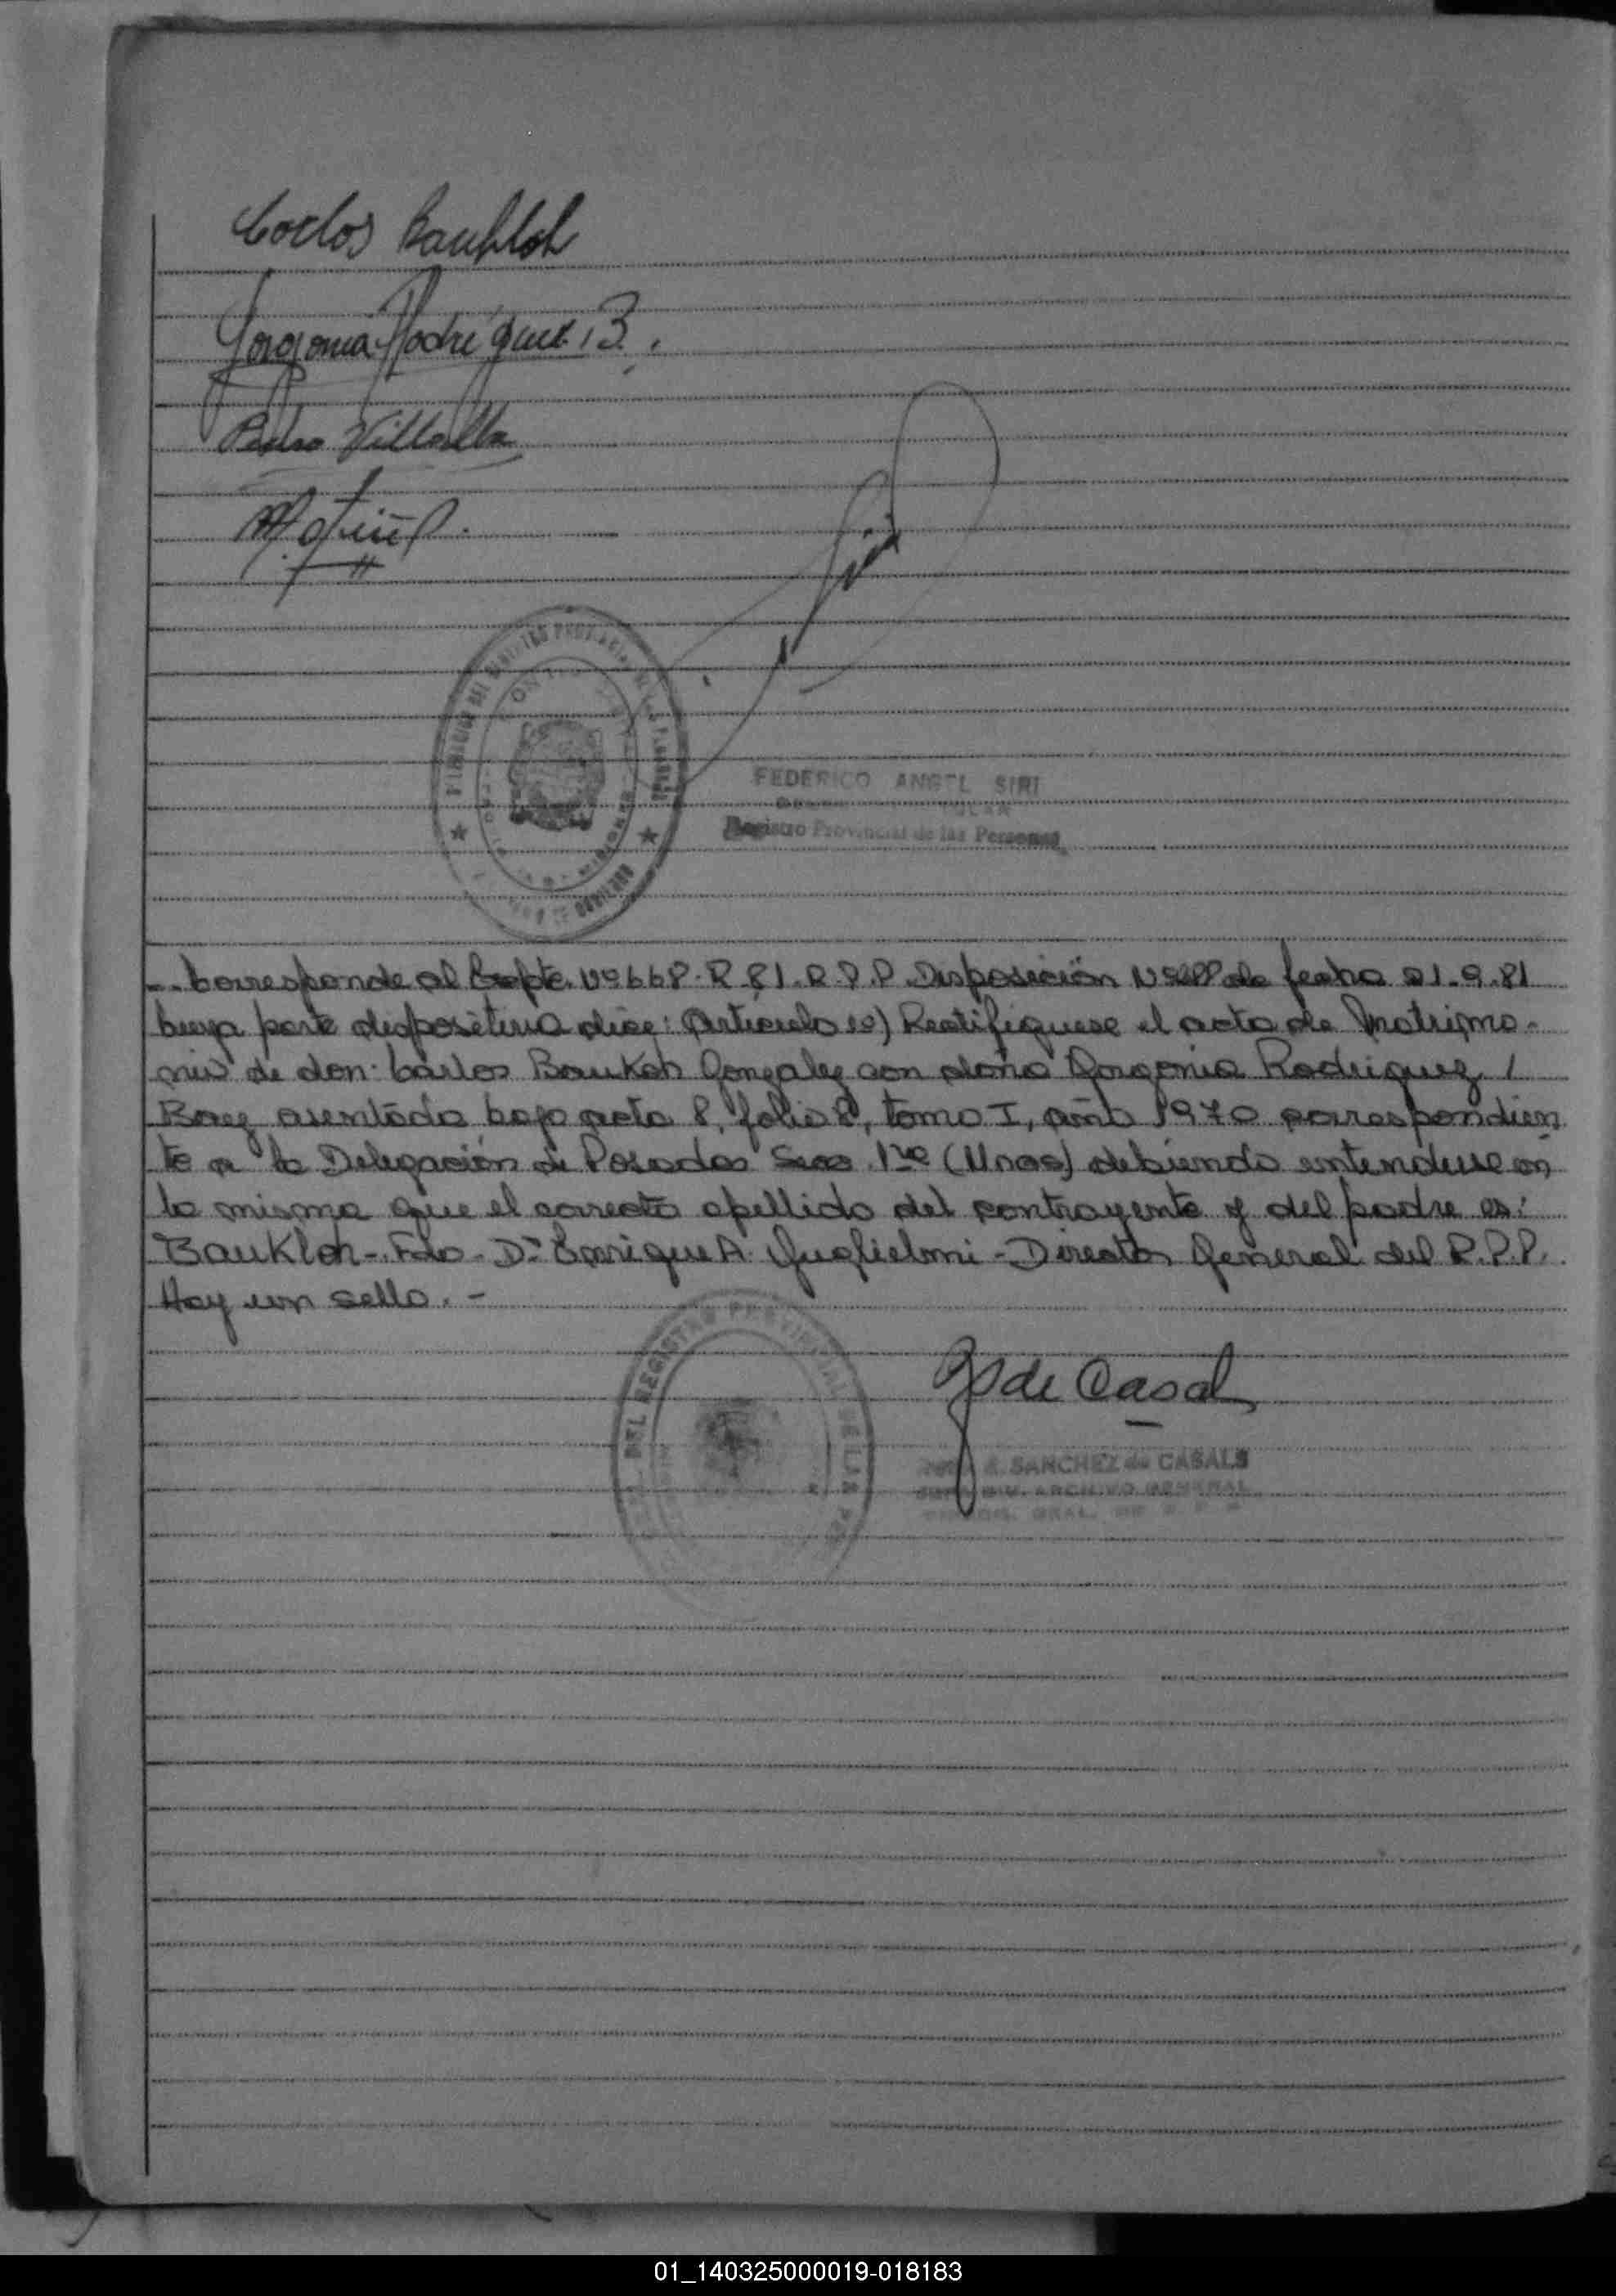 Carlos Baukloh
Gorgonia Rodriguez B.
Pedro Villalba
FEDERICO ANGEL SIRI
Registro Provincial de las Personas
- Corresponde al Expte. Nº 668-R-81-R.P.P. Disposición Nº de fecha 21.9.81
cuya parte dispositiva dice: Artículo 1º) Rectifíquese el acta de Matrimo-
nio de don: Carlos Baukoh Gonzalez con doña Gorgonia Rodriguez /
Baez asentada bajo acta 8, folio 8, tomo I, año 1970 correspondien
te a la Delegación de Posadas Secc. 1ra (Mnes) debiendo entenderse en
la misma que el correcto apellido del contrayente y del padre es:
Baukloh - Fdo - Dr. Enrique A. Guglielmi - Director General del R.P.P.
Hay un sello. -
DEL REGISTRO PROVINCIAL DE LAS PE
de Casal
SANCHEZ de CASALS
ARCHIVO GENERAL
GRAL. DE
01_140325000019-018183